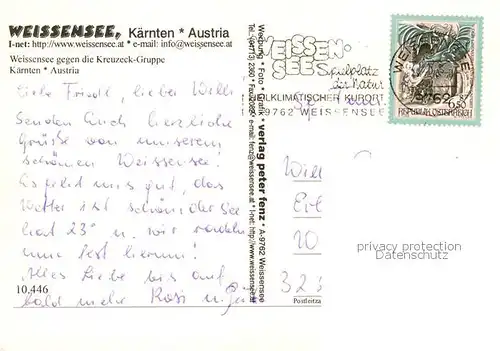 WEISSENSEE, Kärnten * Austria
I-net: http://www.weissensee.at * e-mail: info@weissensee.at
Weissensee gegen die Kreuzeck-Gruppe
Kärnten * Austria
Liebe Friedl, lieber Willi
Senden Euch herzliche
Grüße von unserem
schönen Weissensee!
Es geht uns gut, das
Wetter ist schön, der See
hat 23° u. wir radeln
herum!
Alles Liebe bis auf
bald Rosi u.
10.446
Werbung * Foto * Grafik * verlag peter fenz * A-9762 Weissensee
e-mail: fenz@weissensee.at * I-net: http://www.weissensee.at
WEISSEN-
SEE
Spielplatz
der Natur
HEILKLIMATISCHER KURORT
9762 WEISSENSEE
9762
6,50
REPUBLIK ÖSTERREICH
Postleitza
privacy protection
Datenschutz